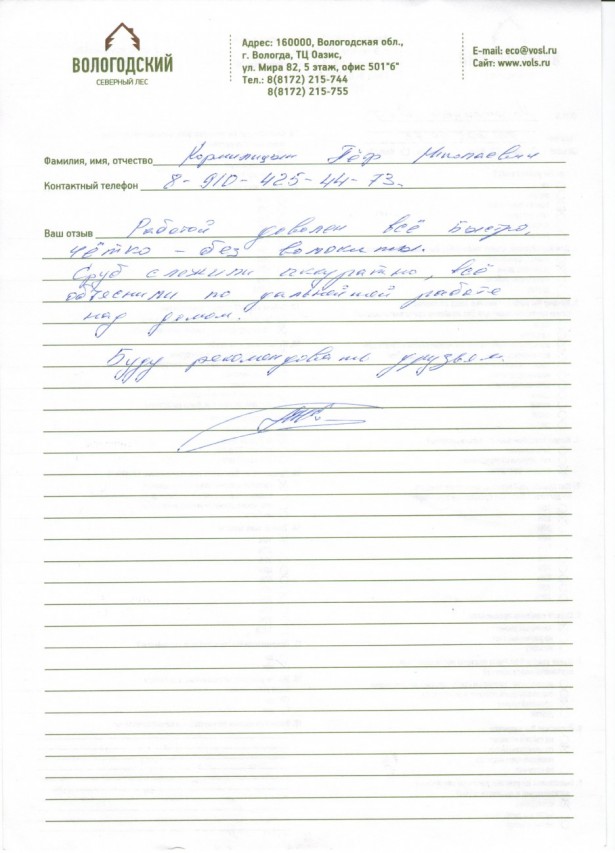 ВОЛОГОДСКИЙ
СЕВЕРНЫЙ ЛЕС
Адрес: 160000, Вологодская обл.,
г. Вологда, ТЦ Оазис,
ул. Мира 82, 5 этаж, офис 501"б"
Тел.: 8(8172) 215-744
8(8172) 215-755
E-mail: eco@vosl.ru
Сайт: www.vols.ru
Фамилия, имя, отчество Николаевич
Контактный телефон 8-910-425-44-73.
Ваш отзыв Работой доволен всё быстро,
чётко – без волокиты.
Сруб сложили аккуратно, всё
объяснили по дальнейшей работе
над домом.
Буду рекомендовать друзьям.